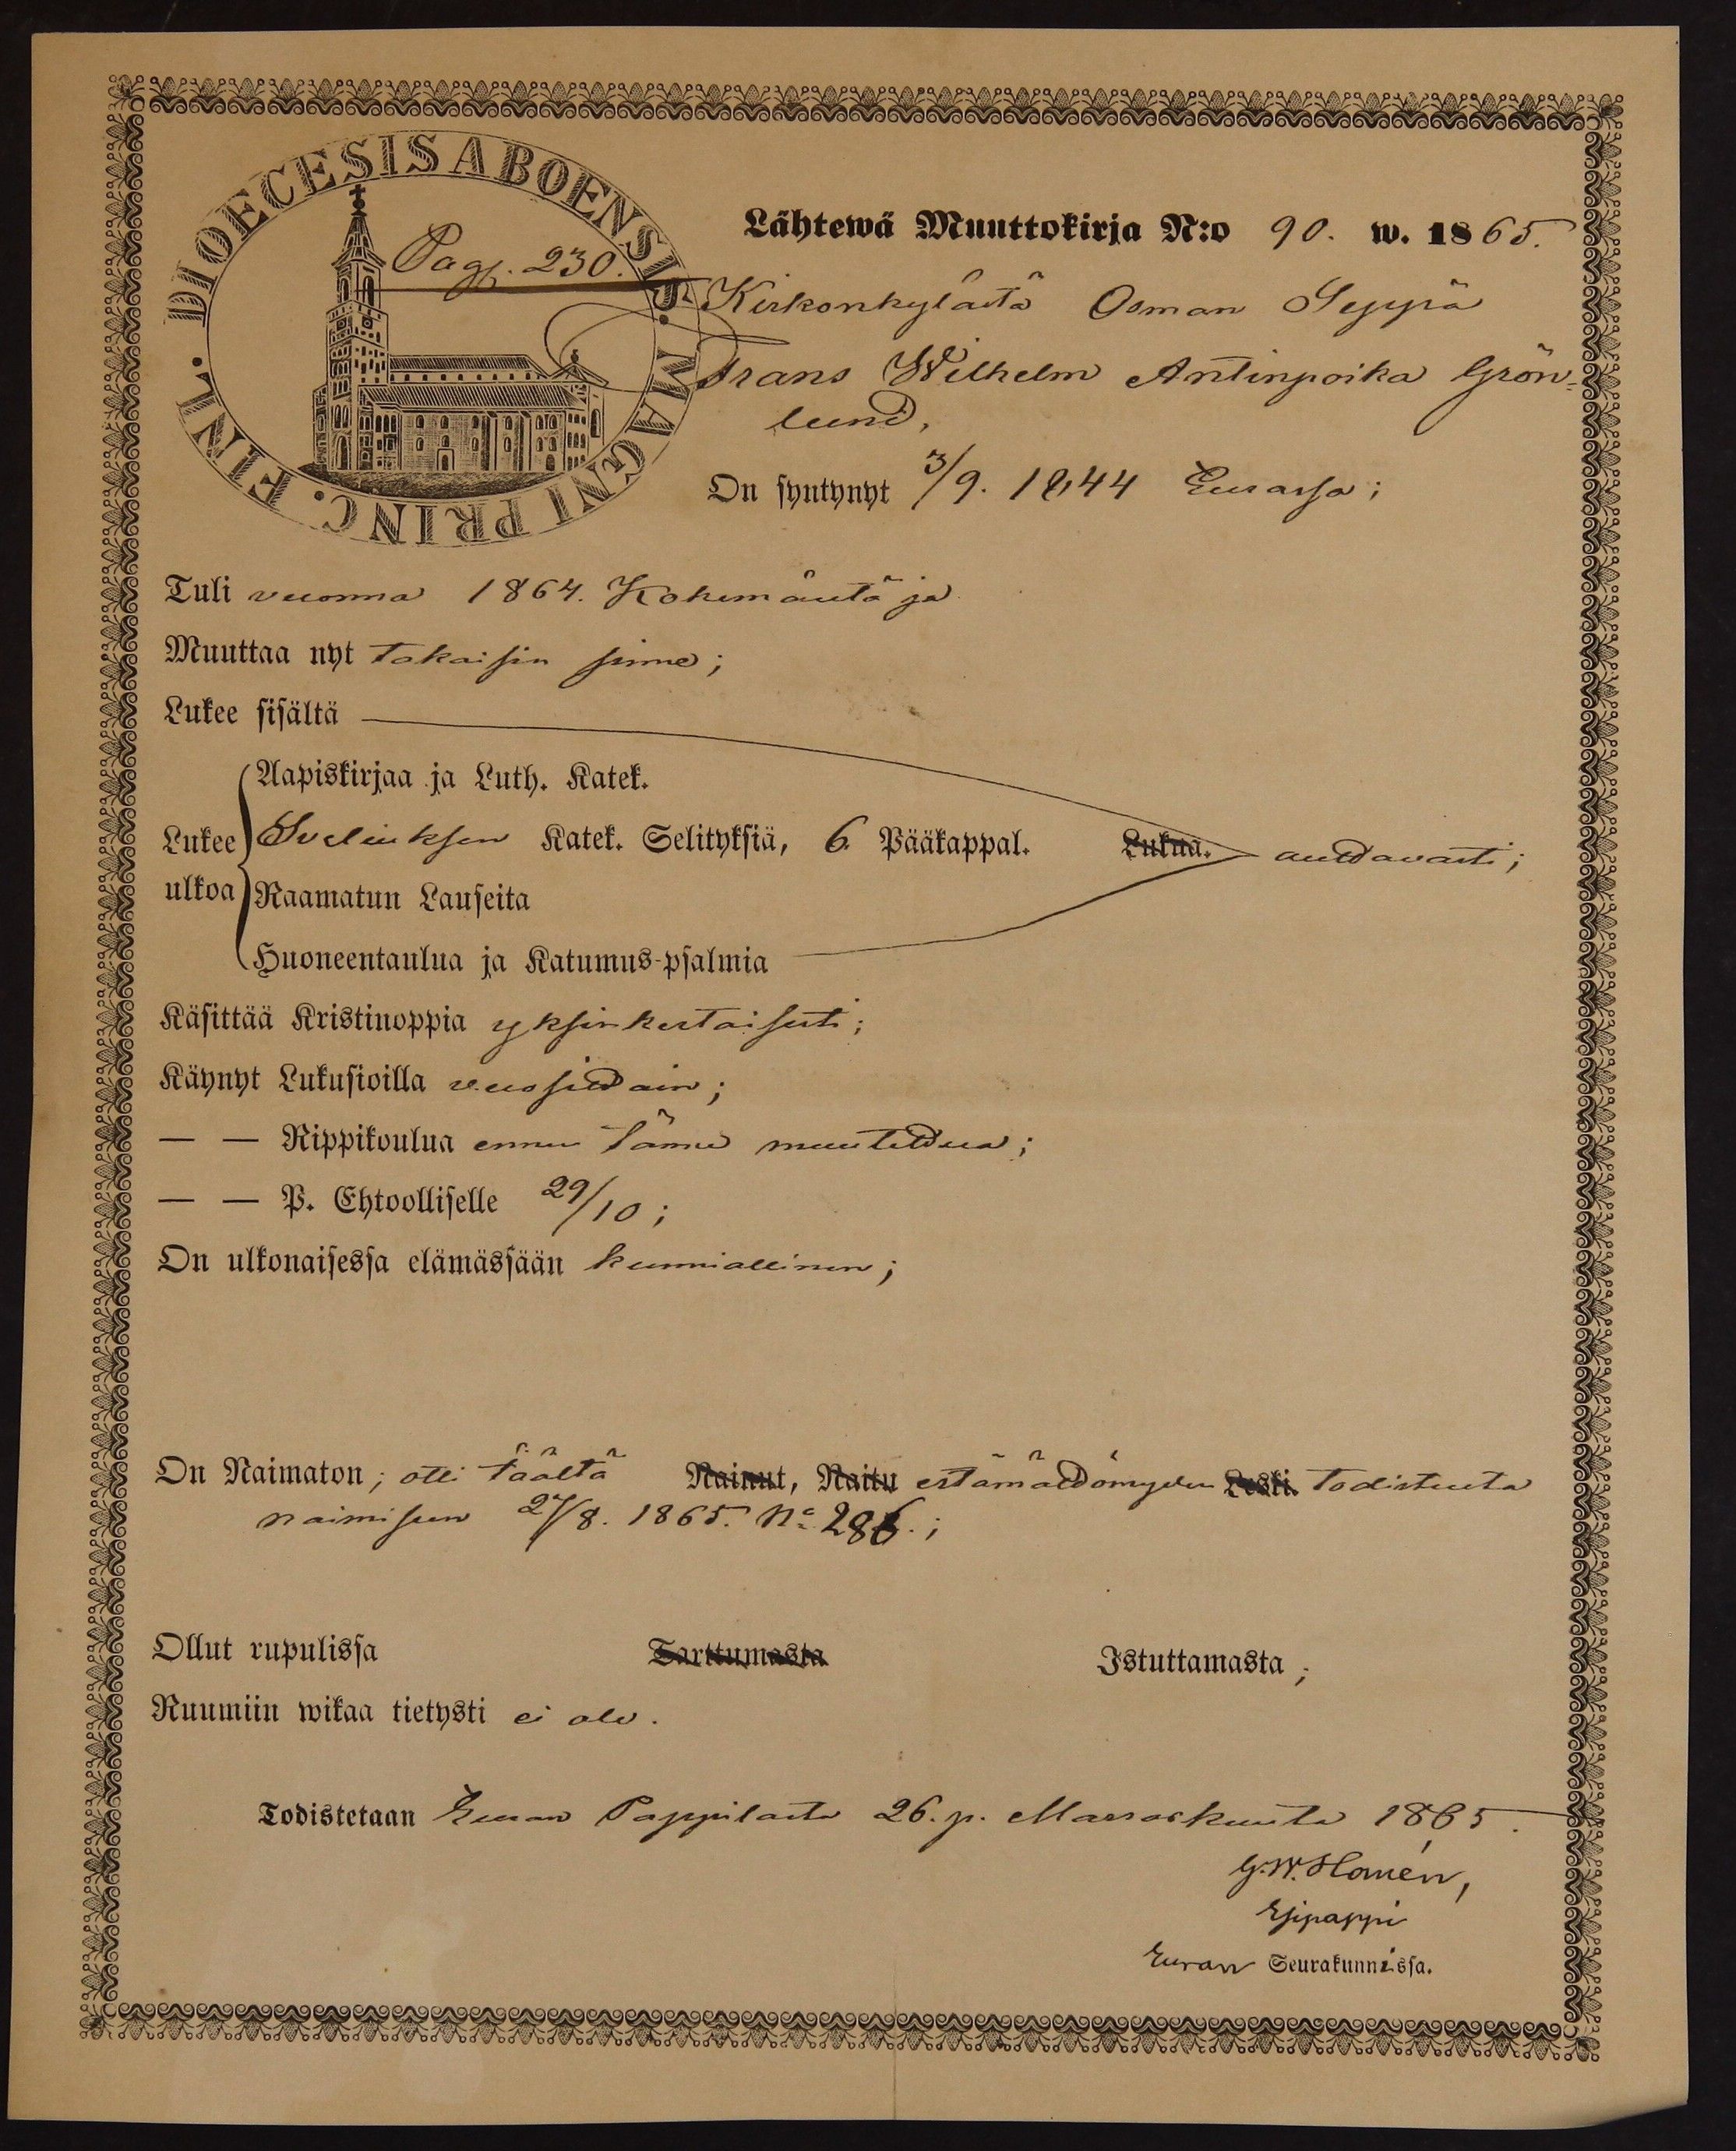 DIOECESIS ABOENSIS. MAGNI PRINC. FINL.
Pag. 230.
Lähtewä Muuttokirja N:o 90. w. 1865.
Kirkonkylästä Osman Seppä
Frans Wilhelm Antinpoika Grön-
lund,
On syntynyt 3/9. 1844 Eurassa;
Tuli vuonna 1864. Kokemäeltä ja
Muuttaa nyt takaisin sinne;
Lukee sisältä
Aapiskirjaa ja Luth. Katek.
Lukee ulkoa Sveliuksen Katek. Selityksiä, 6 Pääkappal. Lukua. auttavasti;
Raamatun Lauseita
Huoneentaulua ja Katumus-psalmia
Käsittää Kristinoppia yksinkertaisesti;
Käynyt Lukusioilla vuosittain;
— — Rippikoulua ennen tänne muutettua;
— — P. Ehtoolliselle 29/10;
On ulkonaisessa elämässään kunniallinen;
On Naimaton; otti täältä Nainut, Naitu estämättömyden Leski. todistusta
naimiseen 27/8. 1865. No 286.;
Ollut rupulissa Tarttumasta Istuttamasta;
Ruumiin wikaa tietysti ei ole.
Todistetaan Euran Pappilasta 26. p. Marraskuuta 1865.
G. W. Homén,
Esipappi
Euran Seurakunnissa.